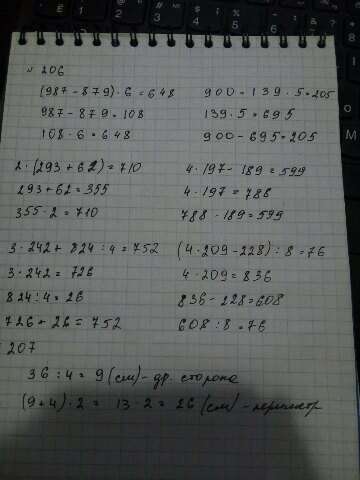 № 206
(987 - 879) · 6 = 648
987 - 879 = 108
108 · 6 = 648
900 - 139 · 5 = 205
139 · 5 = 695
900 - 695 = 205
2 · (293 + 62) = 710
293 + 62 = 355
355 · 2 = 710
4 · 197 - 189 = 599
4 · 197 = 788
788 - 189 = 599
3 · 242 + 824 : 4 = 752
3 · 242 = 726
824 : 4 = 26
726 + 26 = 752
(4 · 209 - 228) : 8 = 76
4 · 209 = 836
836 - 228 = 608
608 : 8 = 76
207
36 : 4 = 9 (см) - др. сторона
(9 + 4) · 2 = 13 · 2 = 26 (см) - периметр